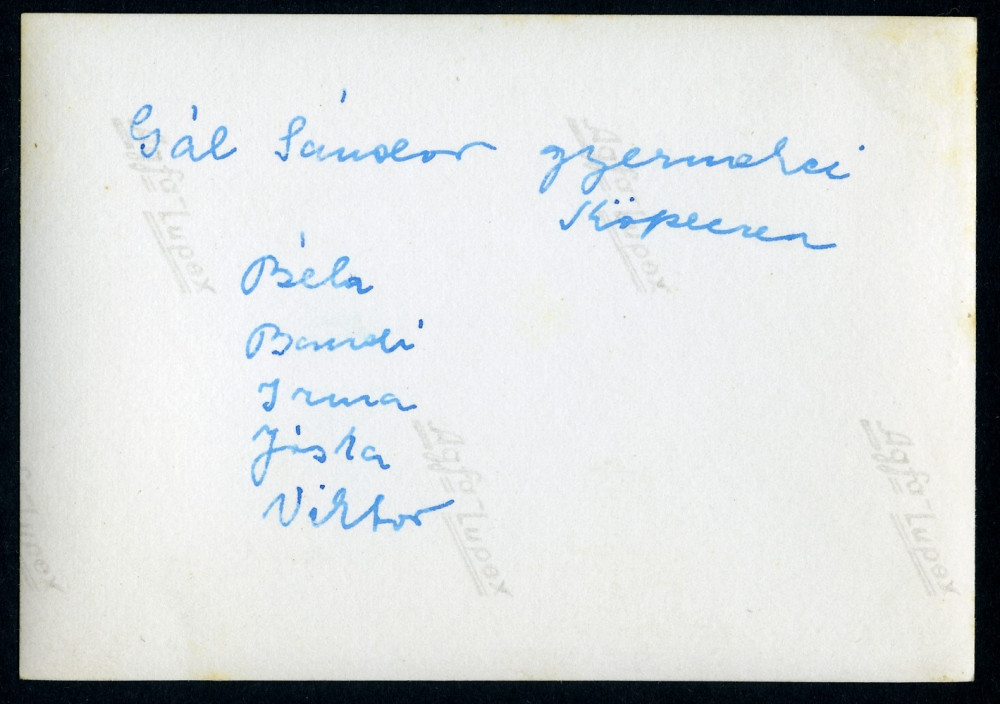 Gál Sándor gyermekei
Köpecen
Béla
Bandi
Irma
Jóska
Viktor
Agfa-Lupex
Agfa-Lupex
Agfa-Lupex
Agfa-Lupex
Lupex